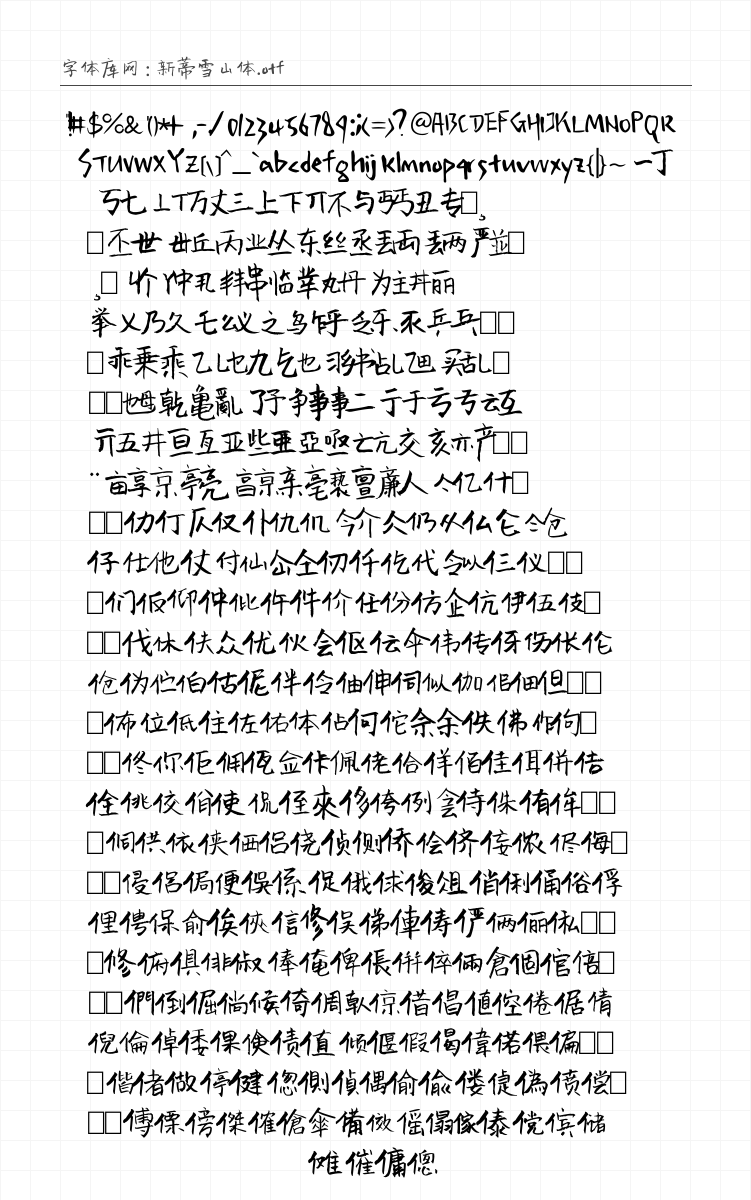 字体库网：新蒂雪山体.otf
#$%&'()*+,-./0123456789:;<=>?@ABCDEFGHIJKLMNOPQR
STUVWXYZ[\]^_`abcdefghijklmnopqrstuvwxyz{|}~一丁
丂七丄丅万丈三上下丌不与丏丐丑专
丕世丗丘丙业丛东丝丞丟両丢两严並
丬中丮丰串临丵丸丹为主丼丽
举乂乃久乇么义之乌乍乎乏乐乑乒乓
乖乗乘乙乚乜九乞也习乡书乩买乱
乸乾亀亂了予争亊事二亍于亏亐云互
亓五井亘亙亚些亜亞亟亡亢交亥亦产
亩享京亭亮亰亳亶廉人亼亿什
仂仃仄仅仆仇仉今介仌仍从仏仑仓
仔仕他仗付仙仝仞仟仡代令以仨仪
们仮仰仲仳仵件价任份仿企伉伊伍伎
伐休伕众优伙会伛伝伞伟传伢伤伥伦
伧伪伫伯估伲伴伶伷伸伺似伽佀佃但
佈位低住佐佑体佔何佗佘余佚佛作佝
佟你佢佣佤佥佧佩佬佮佯佰佳佴併佶
佺佻佼佾使侃侄來侈侉例侌侍侏侑侔
侗供依侠価侣侥侦侧侨侩侪侫侬侭侮
侵侶侷便俁係促俄俅俊俎俏俐俑俗俘
俚俜保俞俟俠信修俣俤俥俦俨俩俪俬
俢俯俱俳俶俸俺俾倀倂倅倆倉個倌倍
們倒倔倘候倚倜倝倞借倡値倥倦倨倩
倪倫倬倭倮倹债值倾偃假偈偉偌偎偏
偕偖做停健偬側偵偶偷偸偻偼偽偾偿
傅傈傍傑傕傖傘備傚傜傝傢傣傥傧储
傩催傭傯